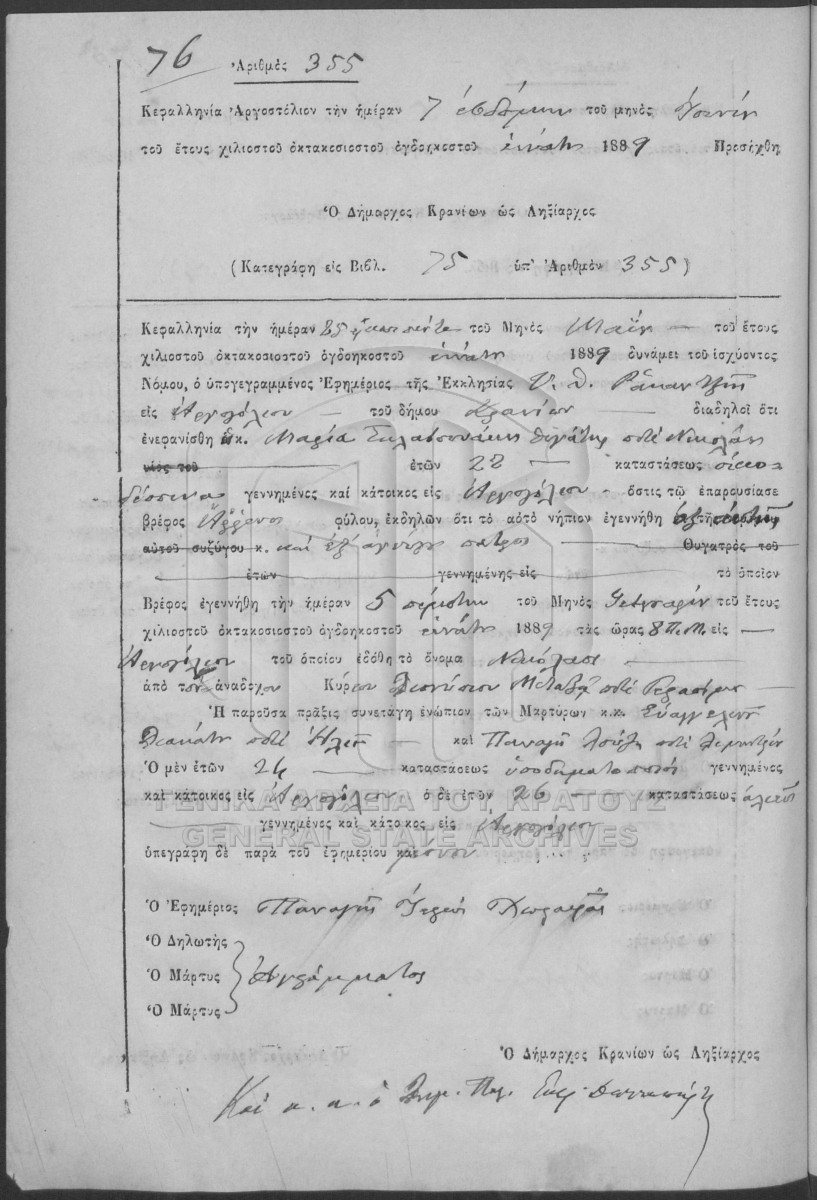 76 Ἀριθμὸς 355
Κεφαλληνία Ἀργοστόλιον τὴν ἡμέραν 7 ἑβδόμην τοῦ μηνὸς
τοῦ ἔτους χιλιοστοῦ ὀκτακοσιοστοῦ ὀγδοηκοστοῦ ἐννάτου 1889 Προσήχθη
Ὁ Δήμαρχος Κρανίων ὡς Ληξίαρχος
(Κατεγράφη εἰς Βιβλ. 75 ὑπ' Ἀριθμὸν 355)
Κεφαλληνία τὴν ἡμέραν 25 εἴκοσι πέντε τοῦ Μηνὸς Μαΐου τοῦ ἔτους
χιλιοστοῦ ὀκτακοσιοστοῦ ὀγδοηκοστοῦ ἐννάτου 1889 δυνάμει τοῦ ἰσχύοντος
Νόμου, ὁ ὑπογεγραμμένος Ἐφημέριος τῆς Ἐκκλησίας
εἰς Ἀργοστόλιον τοῦ δήμου Κρανίων διαδηλοῖ ὅτι
ἐνεφανίσθη ἡ κ. Μαρία θυγάτηρ ποτὲ Νικολάου
υἱὸς τοῦ ἐτῶν 28 καταστάσεως οἰκο-
δέσποινα γεννημένος καὶ κάτοικος εἰς Ἀργοστόλιον ὅστις τῷ ἐπαρουσίασε
βρέφος ἄρρενος φύλου, ἐκδηλῶν ὅτι τὸ αὐτὸ νήπιον ἐγεννήθη ἐξ αὐτῆς
αὐτοῦ συζύγου κ. καὶ ἐξ ἀγνώστου πατρὸς Θυγατρὸς τοῦ
ἐτῶν γεννημένης εἰς τὸ ὁποῖον
Βρέφος ἐγεννήθη τὴν ἡμέραν 5 πέμπτην τοῦ Μηνὸς τοῦ ἔτους
χιλιοστοῦ ὀκτακοσιοστοῦ ὀγδοηκοστοῦ ἐννάτου 1889 τὰς ὥρας 8 εἰς
Ἀργοστόλιον τοῦ ὁποίου ἐδόθη τὸ ὄνομα Νικόλαος
ἀπὸ τὸν ἀνάδοχον Κύριον Διονύσιον Μεταξᾶ ποτὲ Γερασίμου
Ἡ παροῦσα πρᾶξις συνετάγη ἐνώπιον τῶν Μαρτύρων κ.κ. Εὐαγγελινὸς
ποτὲ καὶ Παναγῆ ποτὲ
Ὁ μὲν ἐτῶν 24 καταστάσεως ὑποδηματοποιὸς γεννημένος
καὶ κάτοικος εἰς Ἀργοστόλιον ὁ δὲ ἐτῶν 26 καταστάσεως ἁλιεὺς
γεννημένος καὶ κάτοικος εἰς Ἀργοστόλιον
ΓΕΝΙΚΑ ΑΡΧΕΙΑ ΤΟΥ ΚΡΑΤΟΥΣ
GENERAL STATE ARCHIVES
ὑπεγράφη δὲ παρὰ τοῦ ἐφημερίου καὶ μόνου
Ὁ Ἐφημέριος Παναγῆς
Ὁ Δηλωτὴς
Ὁ Μάρτυς Ἀγράμματος
Ὁ Μάρτυς
Ὁ Δήμαρχος Κρανίων ὡς Ληξίαρχος